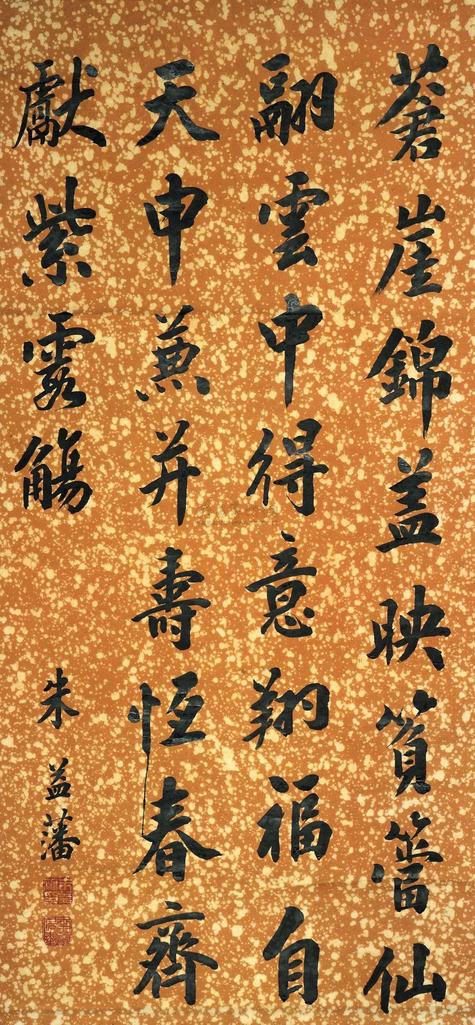 蒼崖錦盖映篔簹仙
翮雲中得意翔福自
天申兼并壽恆春齊
獻紫霞觴
朱益藩